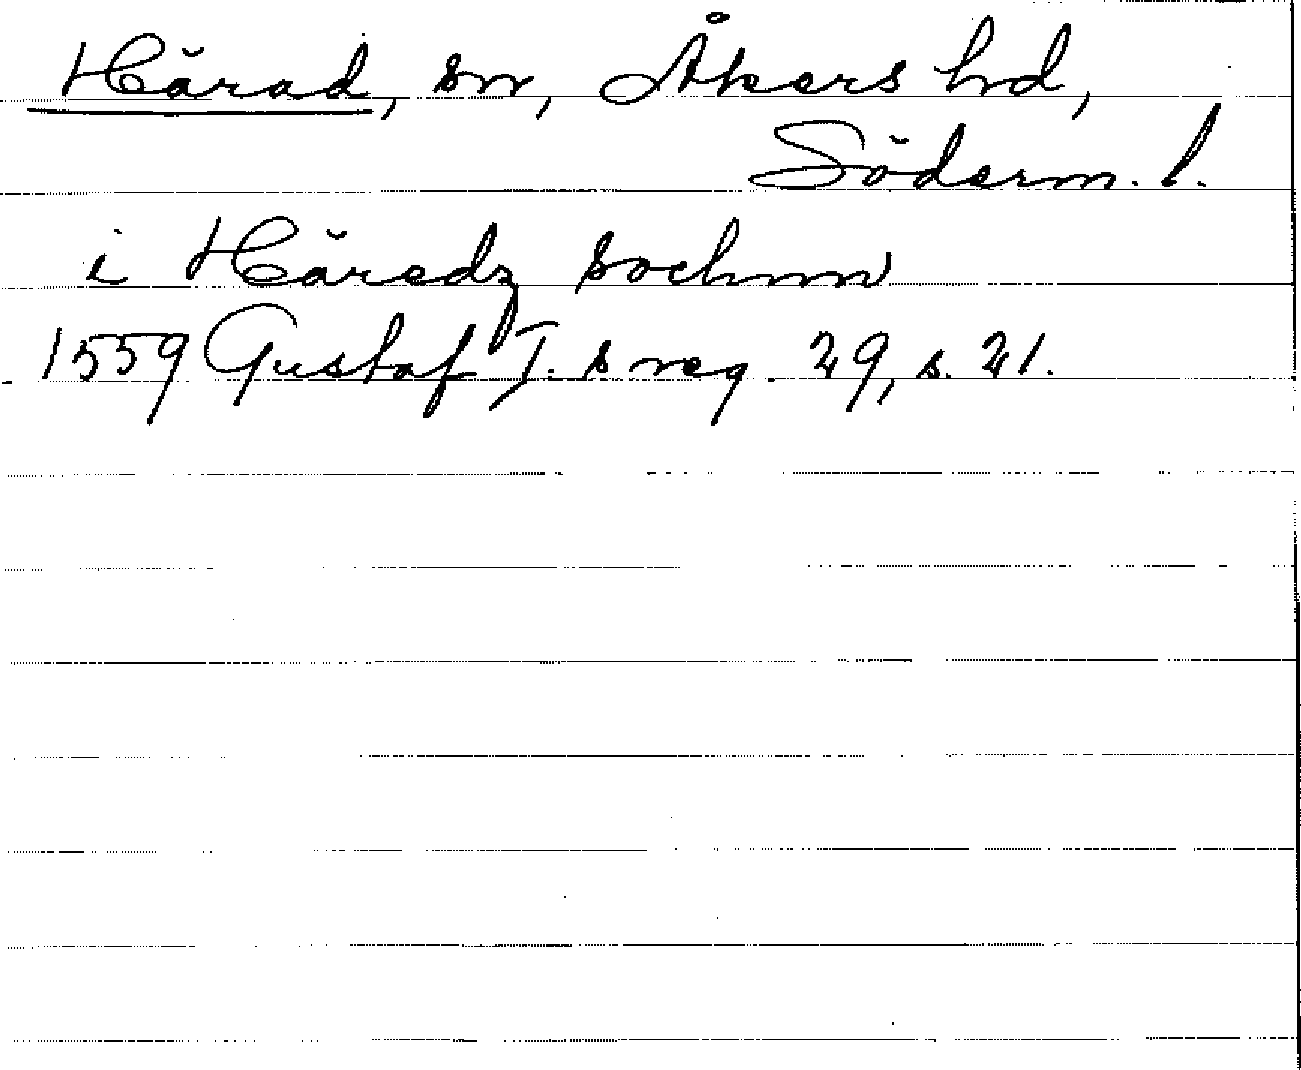 Härad, sn, Åkers hd,
Söderm. l.
i Häredz sochnn
1559 Gustaf I:s reg 29, s. 21.